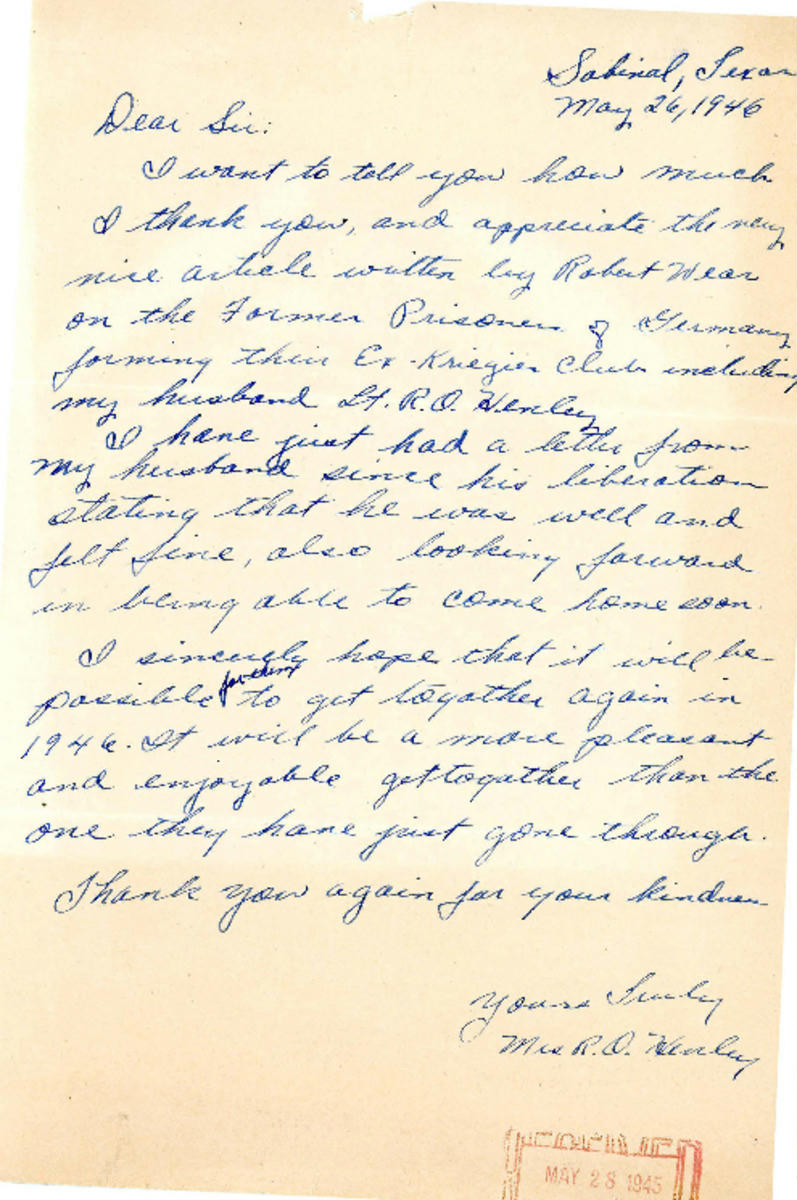 Sabinal, Texas
May 26, 1946
Dear Sir:
I want to tell you how much
I thank you, and appreciate the very
nice article written by Robert Wear
on the Former Prisoners of Germany
forming their Ex-Kriegies Club including
my husband Lt. R.O. Henley
I have just had a letter from
my husband since his liberation
stating that he was well and
felt fine, also looking forward
in being able to come home soon.
I sincerely hope that it will be
for them
possible to get togather again in
1946. It will be a more pleasant
and enjoyable gettogather than the
one they have just gone through.
Thank you again for your kindness
Yours Truly
Mrs R.O. Henley
MAY 28 1945